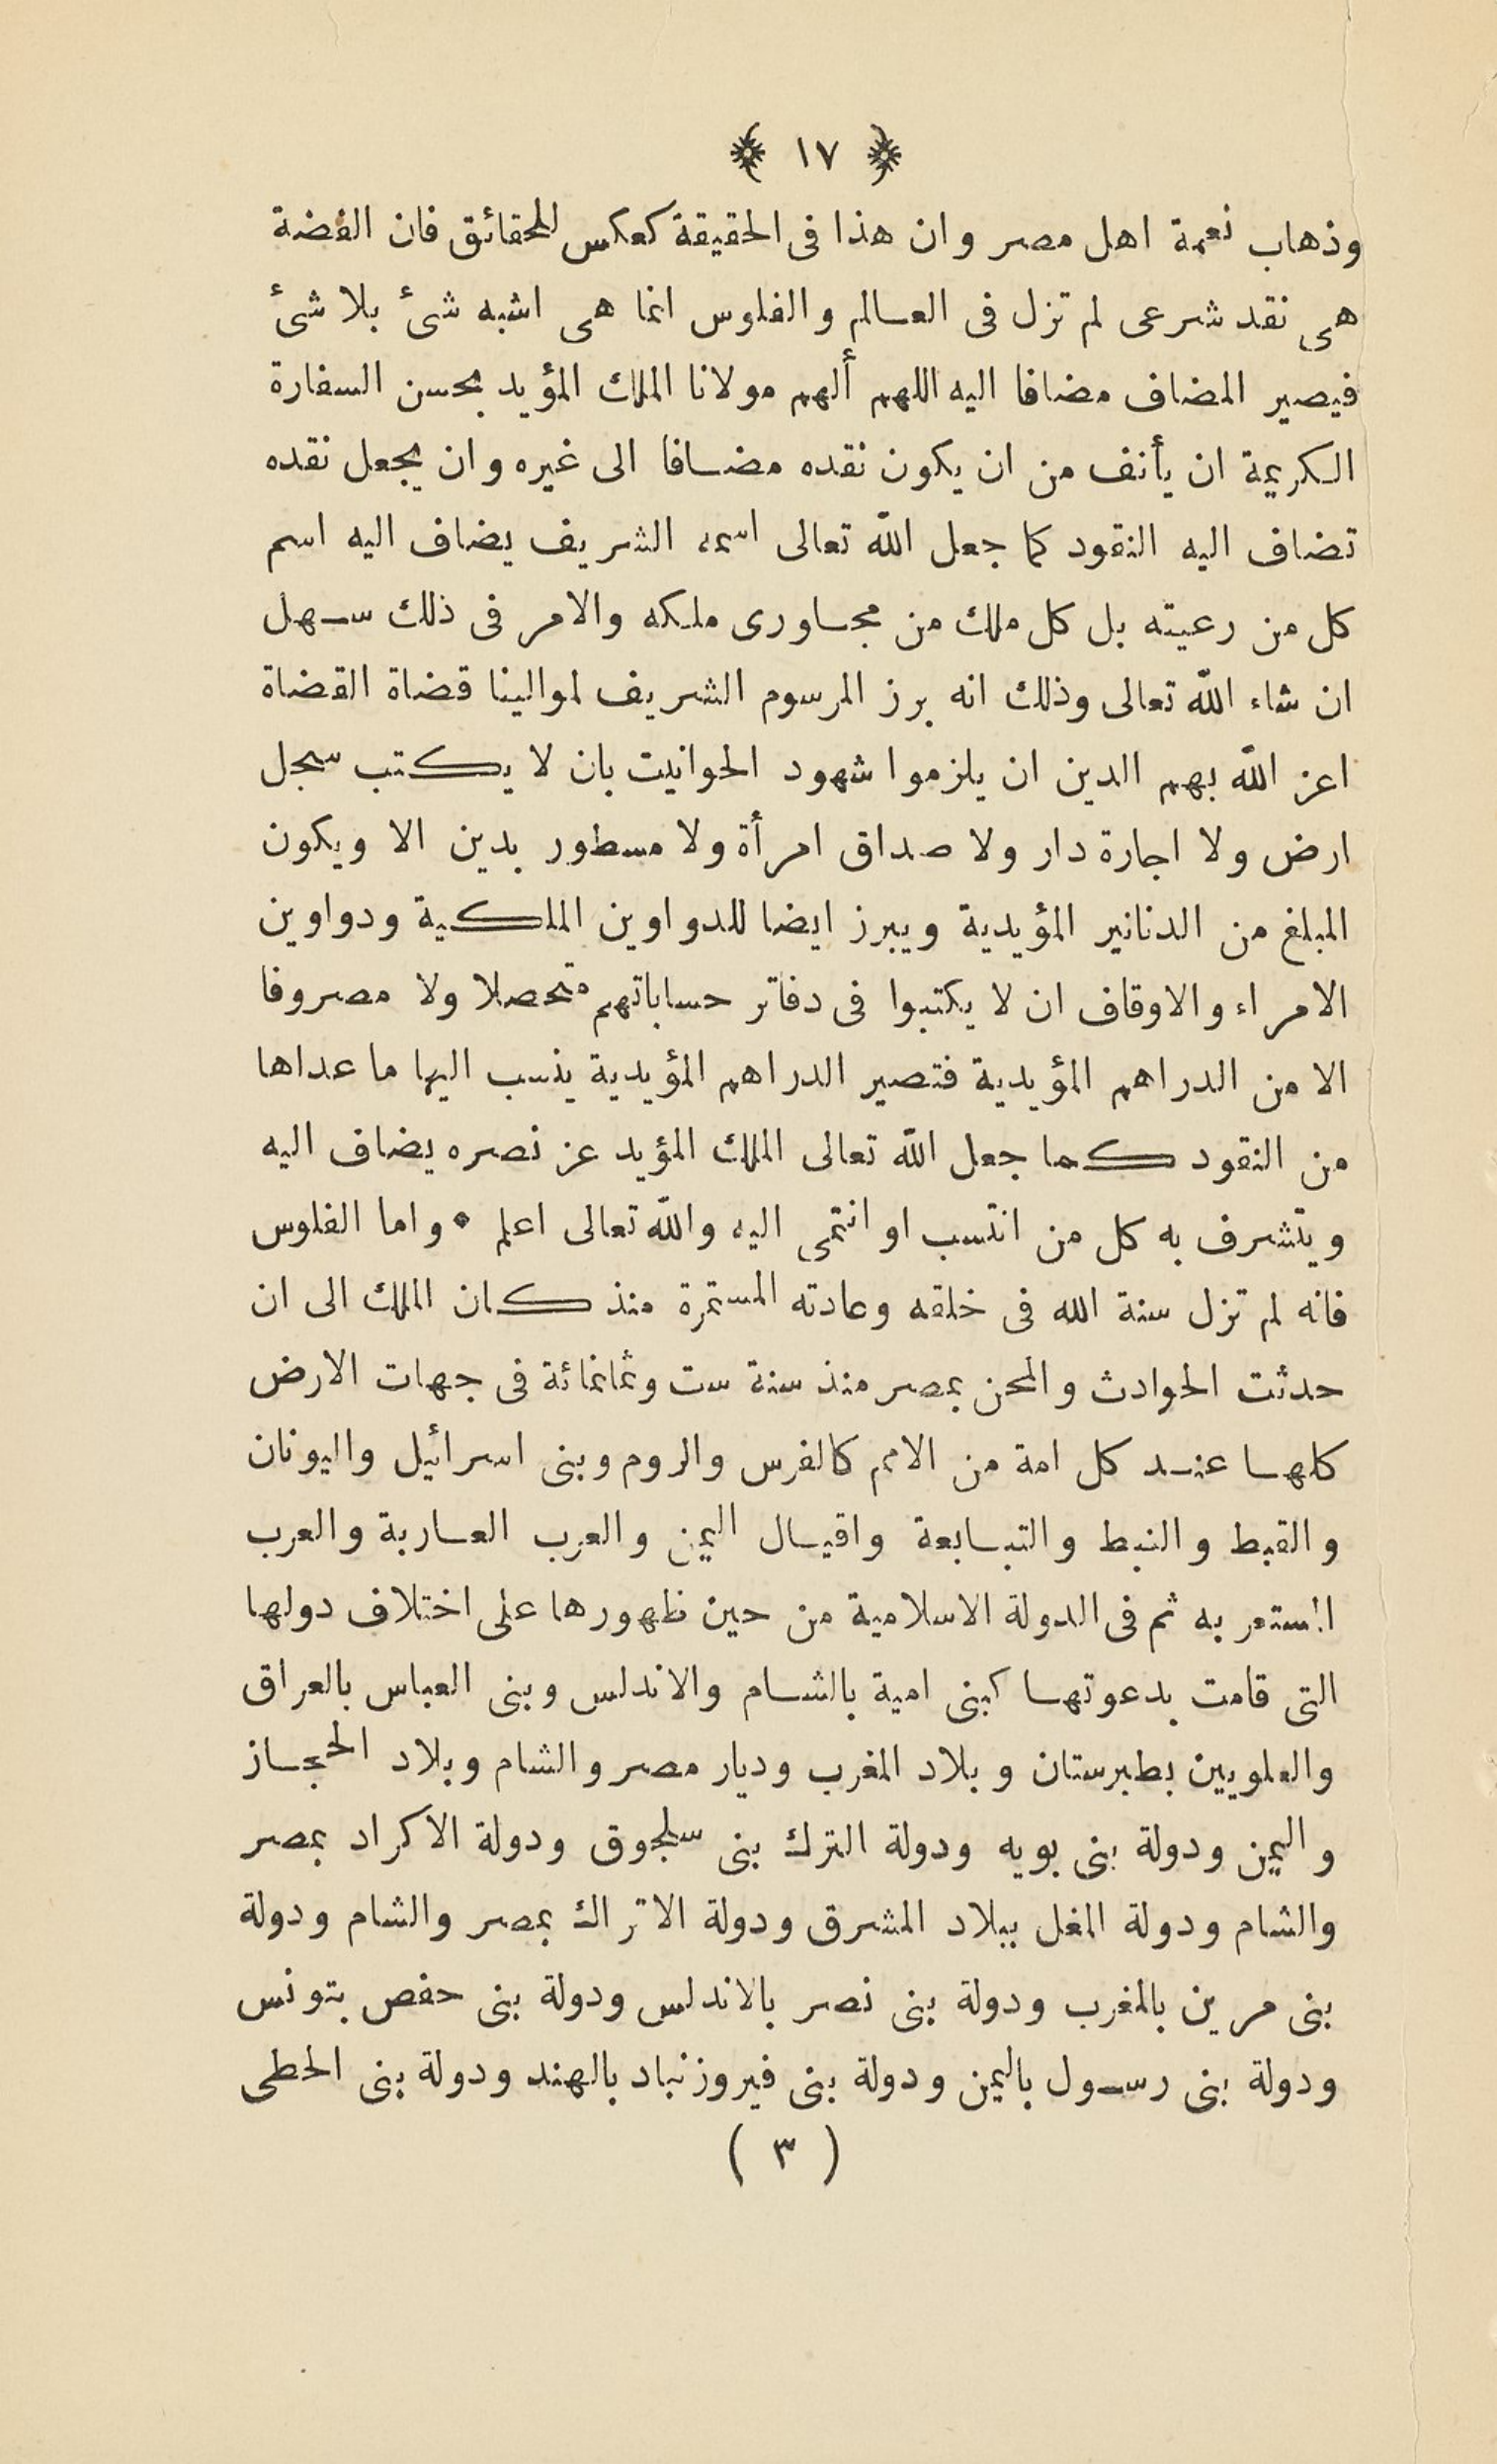 ﴿ ١٧ ﴾
وذهاب نعمة اهل مصر وان هذا فى الحقيقة كعكس للحقائق فان الفضة
هى نقد شرعى لم تزل فى العالم والفلوس انما هى اشبه شئ بلا شئ
فيصير المضاف مضافا اليه اللهم ألهم مولانا الملك المؤيد بحسن السفارة
الكريمة ان يأنف من ان يكون نقده مضافا الى غيره وان يجعل نقده
تضاف اليه النقود كما جعل الله تعالى اسمه الشريف يضاف اليه اسم
كل من رعيته بل كل ملك من مجاورى ملكه والامر فى ذلك سهل
ان شاء الله تعالى وذلك انه برز المرسوم الشريف لموالينا قضاة القضاة
اعز الله بهم الدين ان يلزموا شهود الحوانيت بان لا يكتب سجل
ارض ولا اجارة دار ولا صداق امرأة ولا مسطور بدين الا ويكون
المبلغ من الدنانير المؤيدية ويبرز ايضا للدواوين الملكية ودواوين
الامراء والاوقاف ان لا يكتبوا فى دفاتر حساباتهم متحصلا ولا مصروفا
الا من الدراهم المؤيدية فتصير الدراهم المؤيدية ينسب اليها ما عداها
من النقود كما جعل الله تعالى الملك المؤيد عز نصره يضاف اليه
ويتشرف به كل من انتسب او انتمى اليه والله تعالى اعلم • واما الفلوس
فانه لم تزل سنة الله فى خلقه وعادته المستمرة منذ كان الملك الى ان
حدثت الحوادث والمحن بمصر منذ سنة ست وثمانمائة فى جهات الارض
كلها عند كل امة من الامم كالفرس والروم وبنى اسرائيل واليونان
والقبط والنبط والتبابعة واقيال اليمن والعرب العاربة والعرب
المستعربه ثم فى الدولة الاسلامية من حين ظهورها على اختلاف دولها
التى قامت بدعوتها كبنى امية بالشام والاندلس وبنى العباس بالعراق
والعلويين بطبرستان وبلاد المغرب وديار مصر والشام وبلاد الحجاز
واليمن ودولة بنى بويه ودولة الترك بنى سلجوق ودولة الاكراد بمصر
والشام ودولة المغل ببلاد المشرق ودولة الاتراك بمصر والشام ودولة
بنى مرين بالمغرب ودولة بنى نصر بالاندلس ودولة بنى حفص بتونس
ودولة بنى رسول باليمن ودولة بنى فيروزنباد بالهند ودولة بنى الحطى
( ٣ )